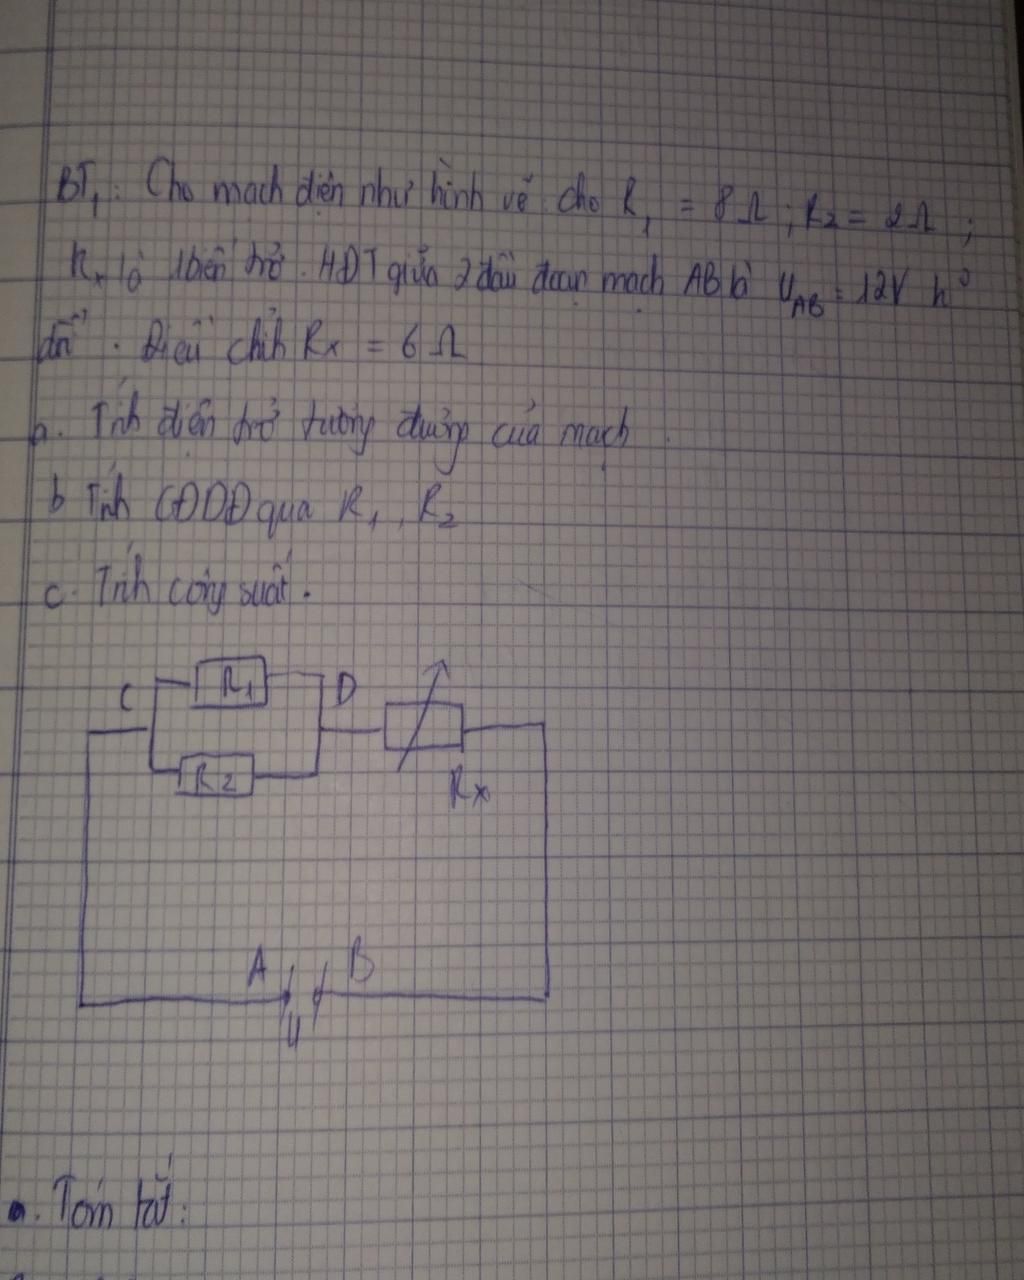 BT1: Cho mạch điện như hình vẽ cho R1 = 8Ω; R2 = 2Ω;
Rx là biến trở. HĐT giữa 2 đầu đoạn mạch AB là UAB = 12V ko
đổi. Điều chỉnh Rx = 6Ω
a. Tính điện trở tương đương của mạch
b Tính CĐDĐ qua R1, R2
c. Tính công suất.
C R1 D
R2 Rx
A B
U
a. Tóm tắt: